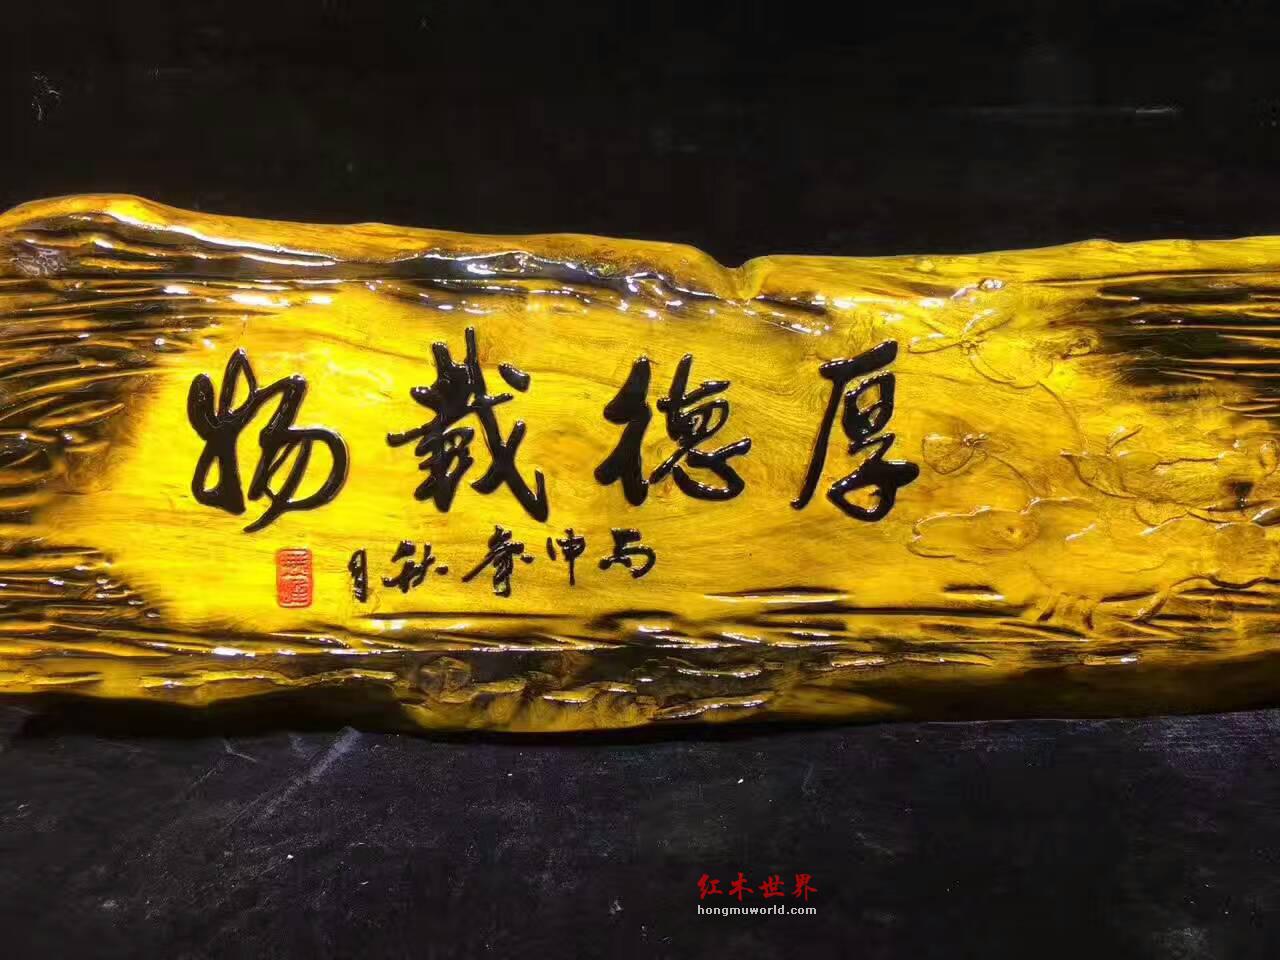 厚德载物
丙申年秋月
红木世界
hongmuworld.com